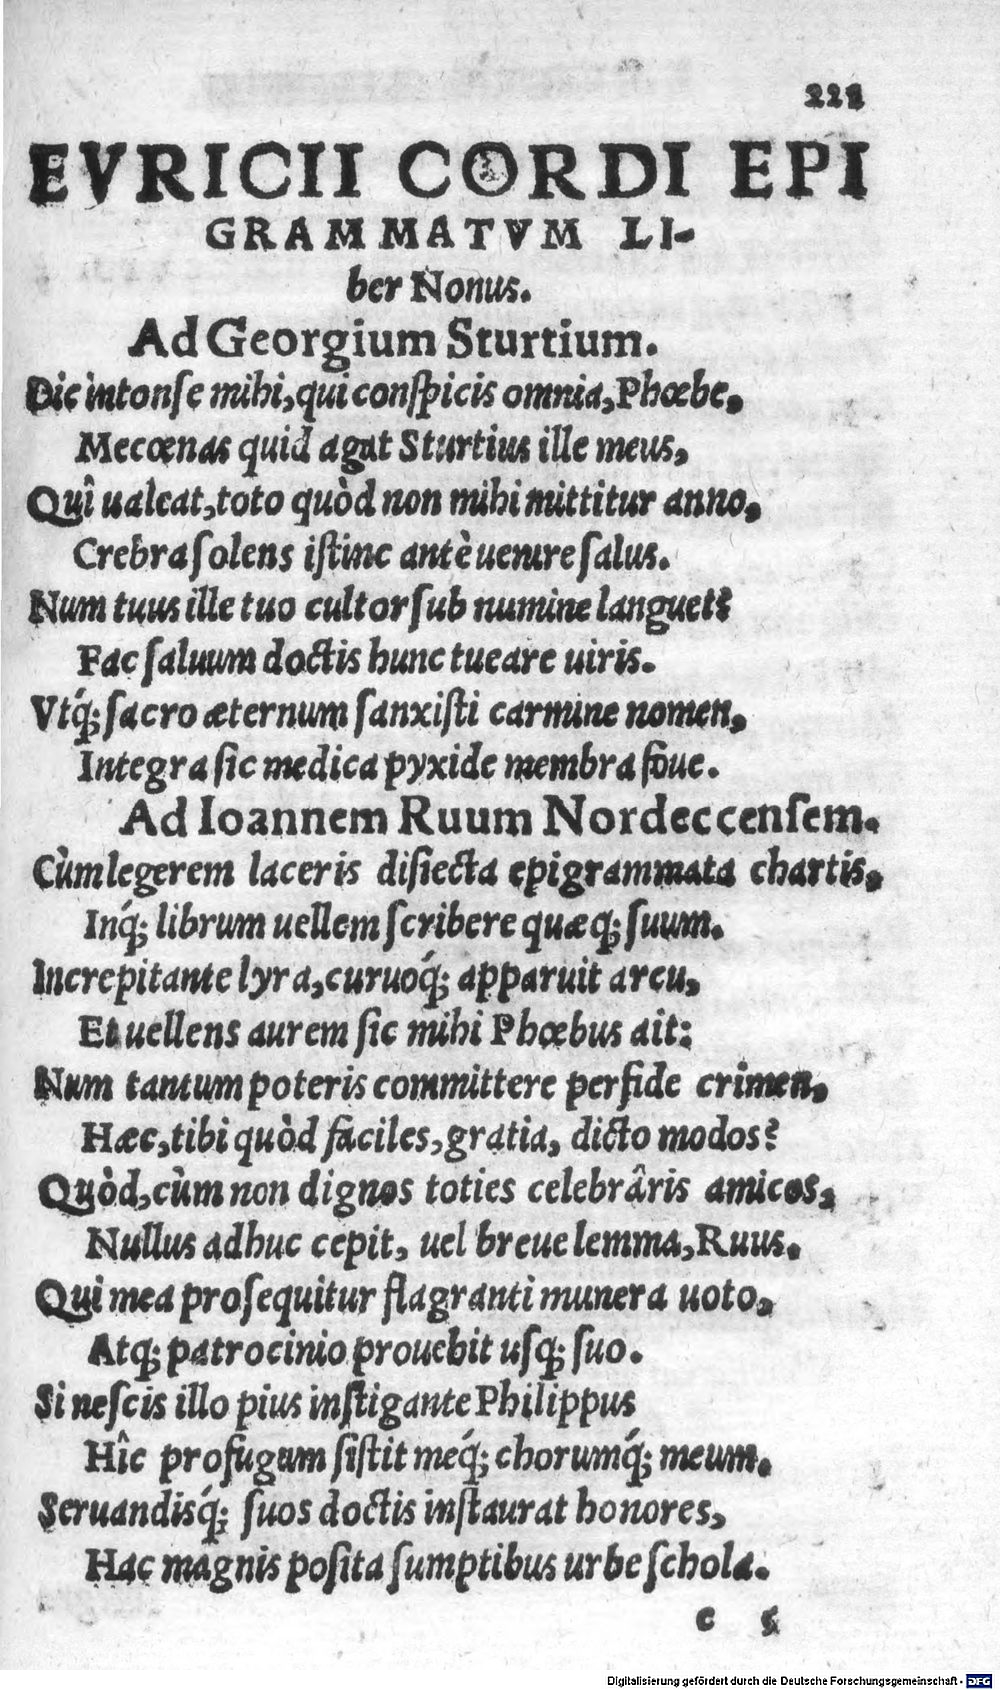 EVRICII CORDI EPI
GRAMMATVM LI-
ber Nonus.
Ad Georgium Sturtium.
Dic intonſe mihi, qui conſpicis omnia, Phœbe,
Mecœnas quid agat Sturtius ille meus,
Quî ualeat, toto quòd non mihi mittitur anno,
Crebra ſolens iſtinc antè uenire ſalus.
Num tuus ille tuo cultor ſub numine languet?
Fac ſaluum doctis hunc tueare uiris.
Vtq́; ſacro æternum ſanxiſti carmine nomen,
Integra ſic medica pyxide membra foue.
Ad Ioannem Ruum Nordeccenſem.
Cùm legerem laceris diſiecta epigrammata chartis,
Inq́; librum uellem ſcribere quæq; ſuum.
Increpitante lyra, curuoq́; apparuit arcu,
Et uellens aurem ſic mihi Phœbus ait:
Num tantum poteris committere perfide crimen,
Hæc, tibi quòd faciles, gratia, dicto modos?
Quòd, cùm non dignos toties celebrâris amicos,
Nullus adhuc cepit, uel breue lemma, Ruus.
Qui mea proſequitur flagranti munera uoto,
Atq; patrocinio prouehit uſq; ſuo.
Si neſcis illo pius inſtigante Philippus
Hîc profugum ſiſtit meq́; chorumq́; meum.
Seruandisq́; ſuos doctis inſtaurat honores,
Hac magnis poſita ſumptibus urbe ſchola.
c
Digitalisierung gefördert durch die Deutsche Forschungsgemeinschaft - DFG